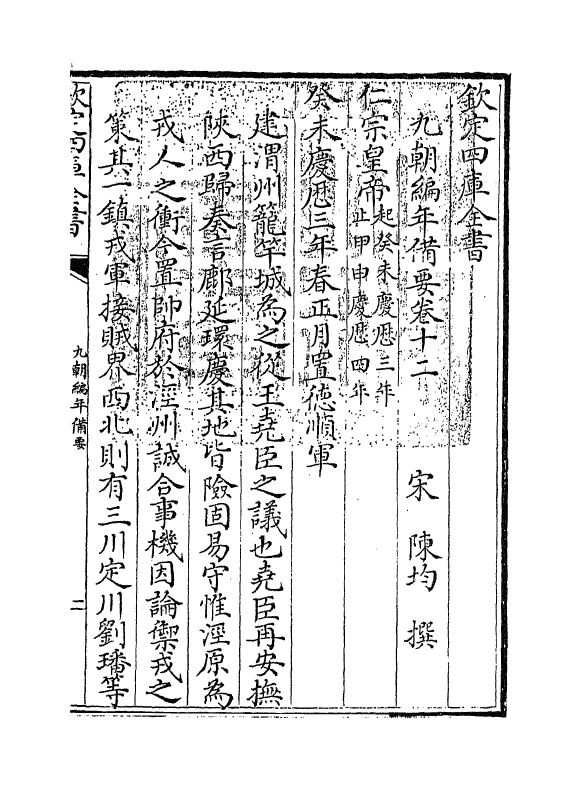 欽定四庫全書
九朝編年備要卷十二
宋 陳均 撰
仁宗皇帝起癸未慶厯三年止甲申慶厯四年
癸未慶厯三年春正月置德順軍
建渭州籠竿城為之從王堯臣之議也堯臣再安撫
陜西歸奏言鄜延環慶其地皆險固易守惟涇原為
戎人之衝今置帥府於涇州誠合事機因論禦戎之
策其一鎮戎軍接賊界西北則有三川定川劉璠等
欽定四庫全書
九朝編年備要
二